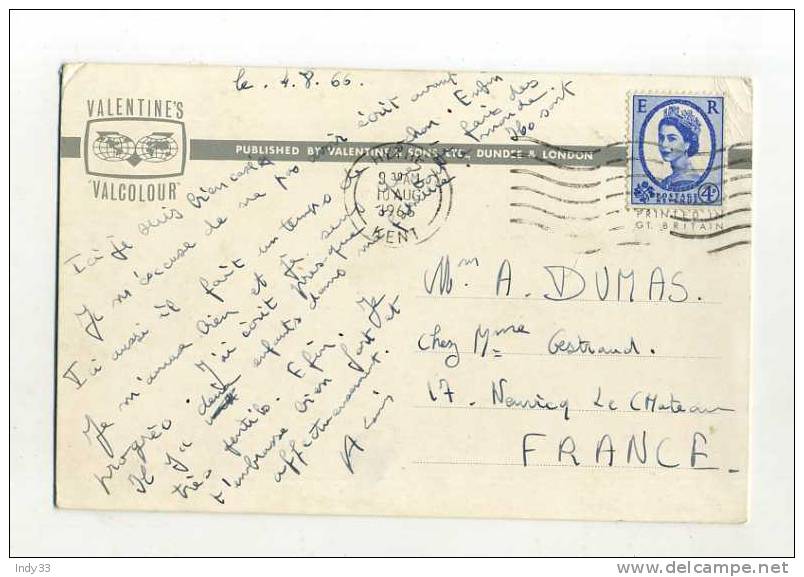 le. 4.8.66.
VALENTINE'S
"VALCOLOUR"
PUBLISHED BY VALENTINE & SONS, LTD., DUNDEE & LONDON
9 30AM
10 AUG
1966
KENT
E R
POSTAGE
REVENUE
4D
PRINTED IN
GT. BRITAIN
Ici je suis bien casé
Je m'excuse de ne pas avoir écrit avant
Ici aussi il fait un temps de
Je m'amuse bien et je
progrès. J'ai écrit presque
Il y a deux enfants dans ma
très gentils. Enfin. Je
t'embrasse bien fort et
affectueusement.
Mm A. DUMAS.
chez Mme Gestraud.
17. Neuvicq Le CHateau
FRANCE.
Indy33
www.delcampe.net